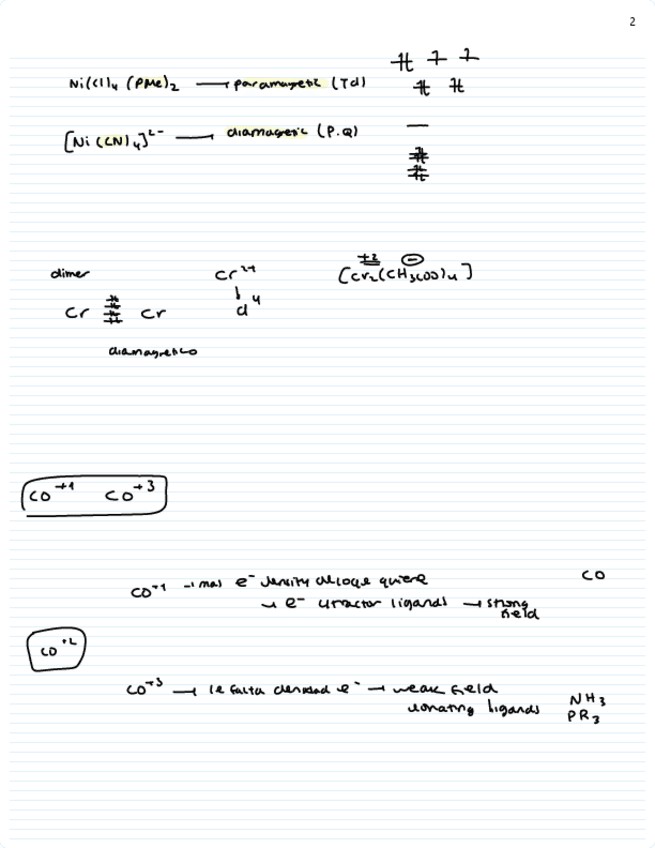 2
Ni(Cl)₄ (PMe)₂ → paramagetic (Td)
[Ni (CN)₄]²⁻ → diamagnetic (P.Q)
dimer Cr²⁺ [Cr₂(CH₃COO)₄]
+2 ⊖
Cr Cr d⁴
diamagnetico
CO⁺¹ CO⁺³
CO⁺¹ → mas e⁻ density de loque quiere CO
→ e⁻ atractor ligands → strong field
CO⁺²
CO⁺³ → le falta densidad e⁻ → weak field
donating ligands NH₃
PR₃